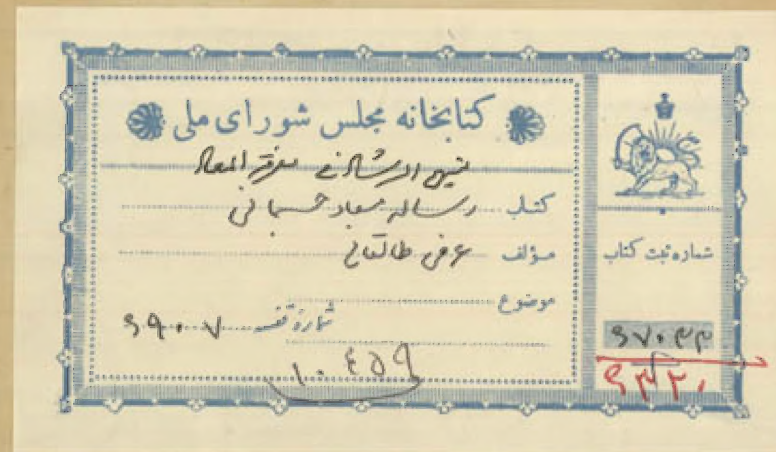 کتابخانه مجلس شورای ملی
معرفة المعاد
کتاب رساله معاد جسمانی
مؤلف طالقانی
موضوع
شماره قفسه ۶۹۰۰۷
۱۰۴۵۹
شماره ثبت کتاب
۶۷۰۳۳
۶۳۳۰